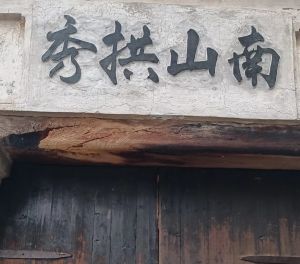 南山拱秀